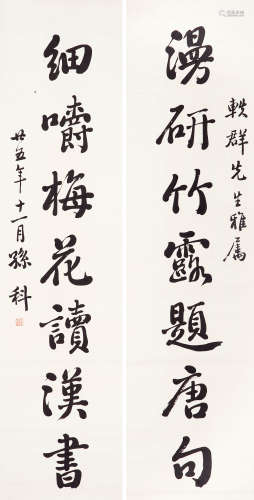 軼群先生雅屬
漫研竹露題唐句
細嚼梅花讀漢書
廿五年十一月孫科